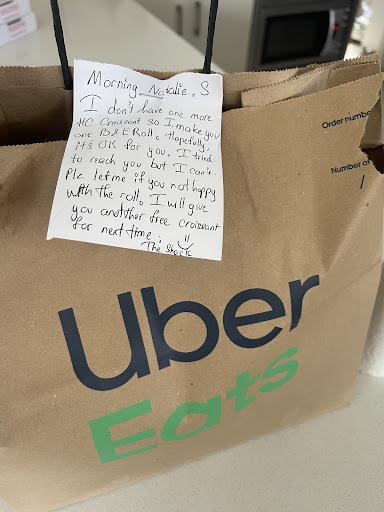 Morning Natalie. S
I don't have one more
HC Croissant so I make you
one B&E Roll. Hopefully,
it's OK for you. I tried
to reach you but I can't.
Plz let me if you not happy
with the roll. I will give
you another free croissant
for next time :
The Shack
Order numbe
Number of
1
Uber
Eats